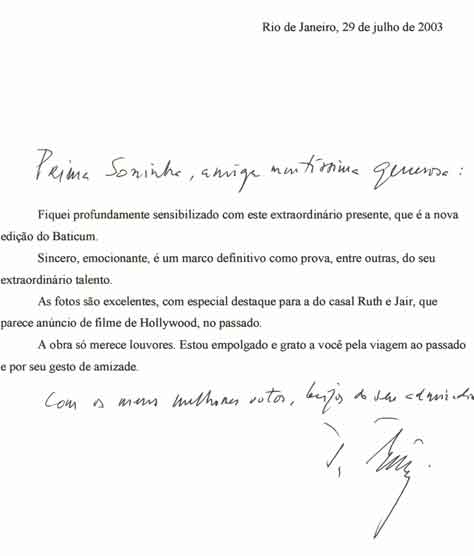 Rio de Janeiro, 29 de julho de 2003
Prima Soninha, amiga muitíssima generosa:
Fiquei profundamente sensibilizado com este extraordinário presente, que é a nova
edição do Baticum.
Sincero, emocionante, é um marco definitivo como prova, entre outras, do seu
extraordinário talento.
As fotos são excelentes, com especial destaque para a do casal Ruth e Jair, que
parece anúncio de filme de Hollywood, no passado.
A obra só merece louvores. Estou empolgado e grato a você pela viagem ao passado
e por seu gesto de amizade.
Com os meus melhores votos, beijos do seu